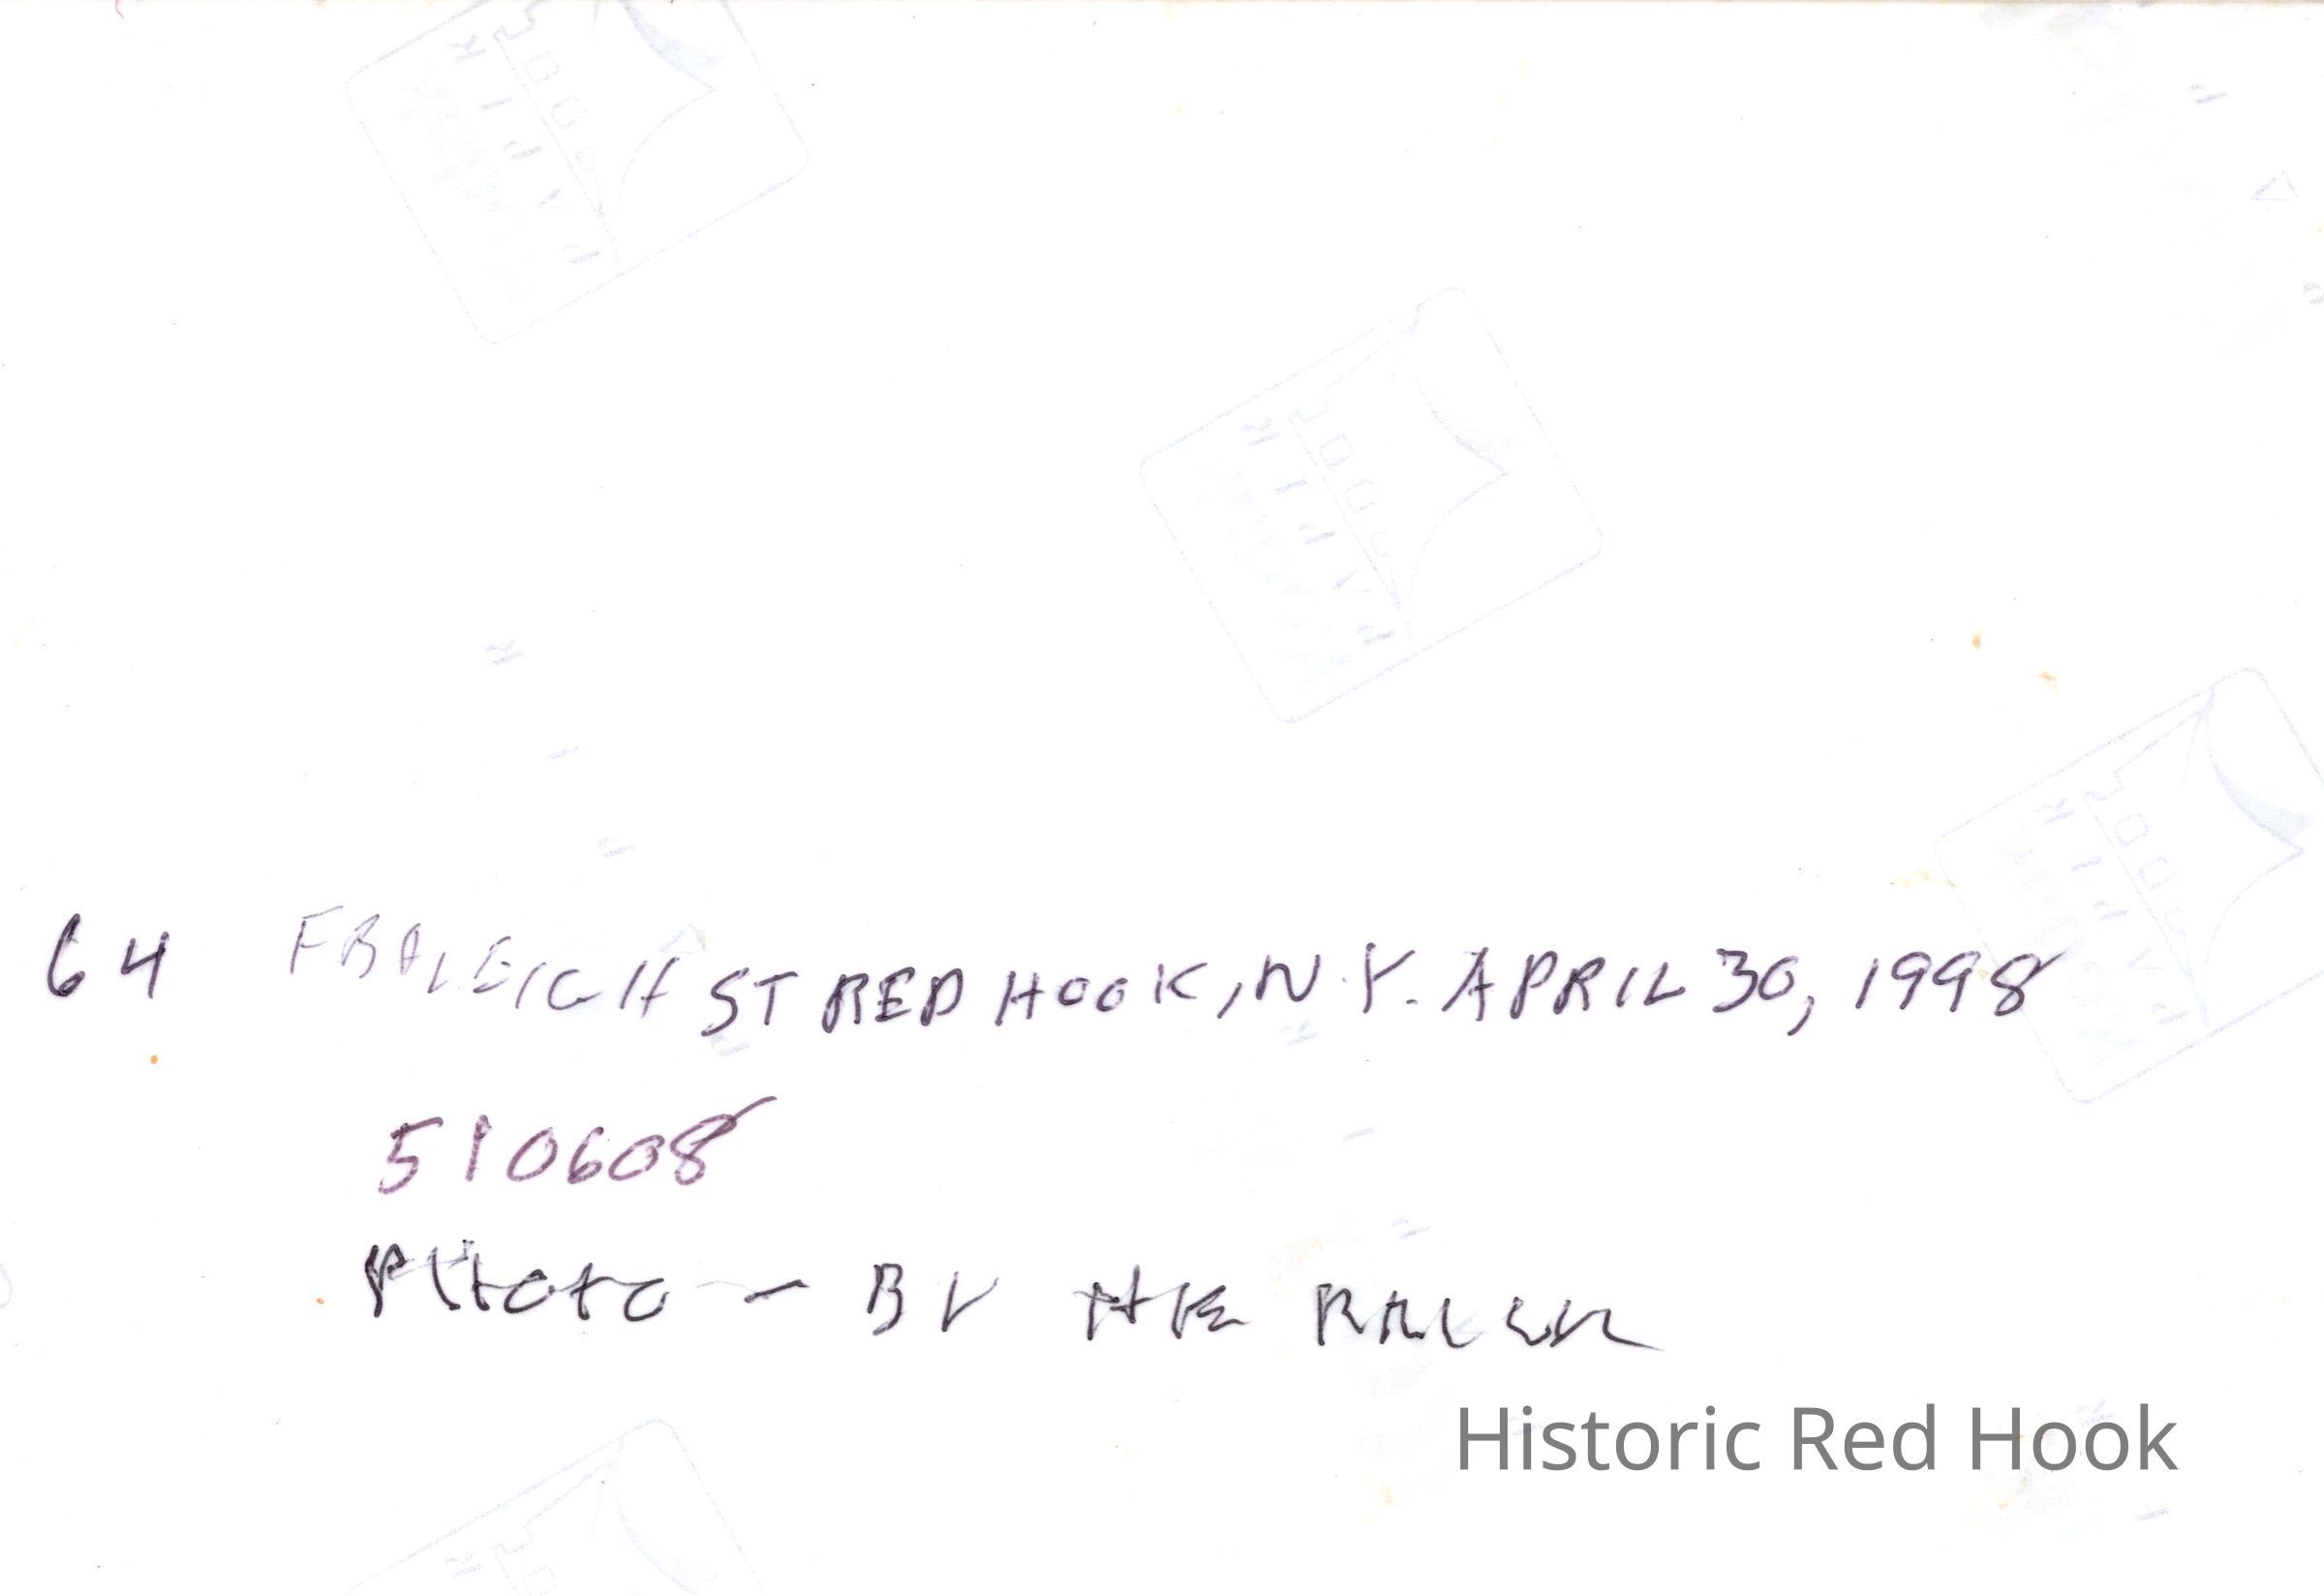 64 FRALEIGH ST RED HOOK, N.Y. APRIL 30, 1998
510608
PHOTO - BY
Historic Red Hook